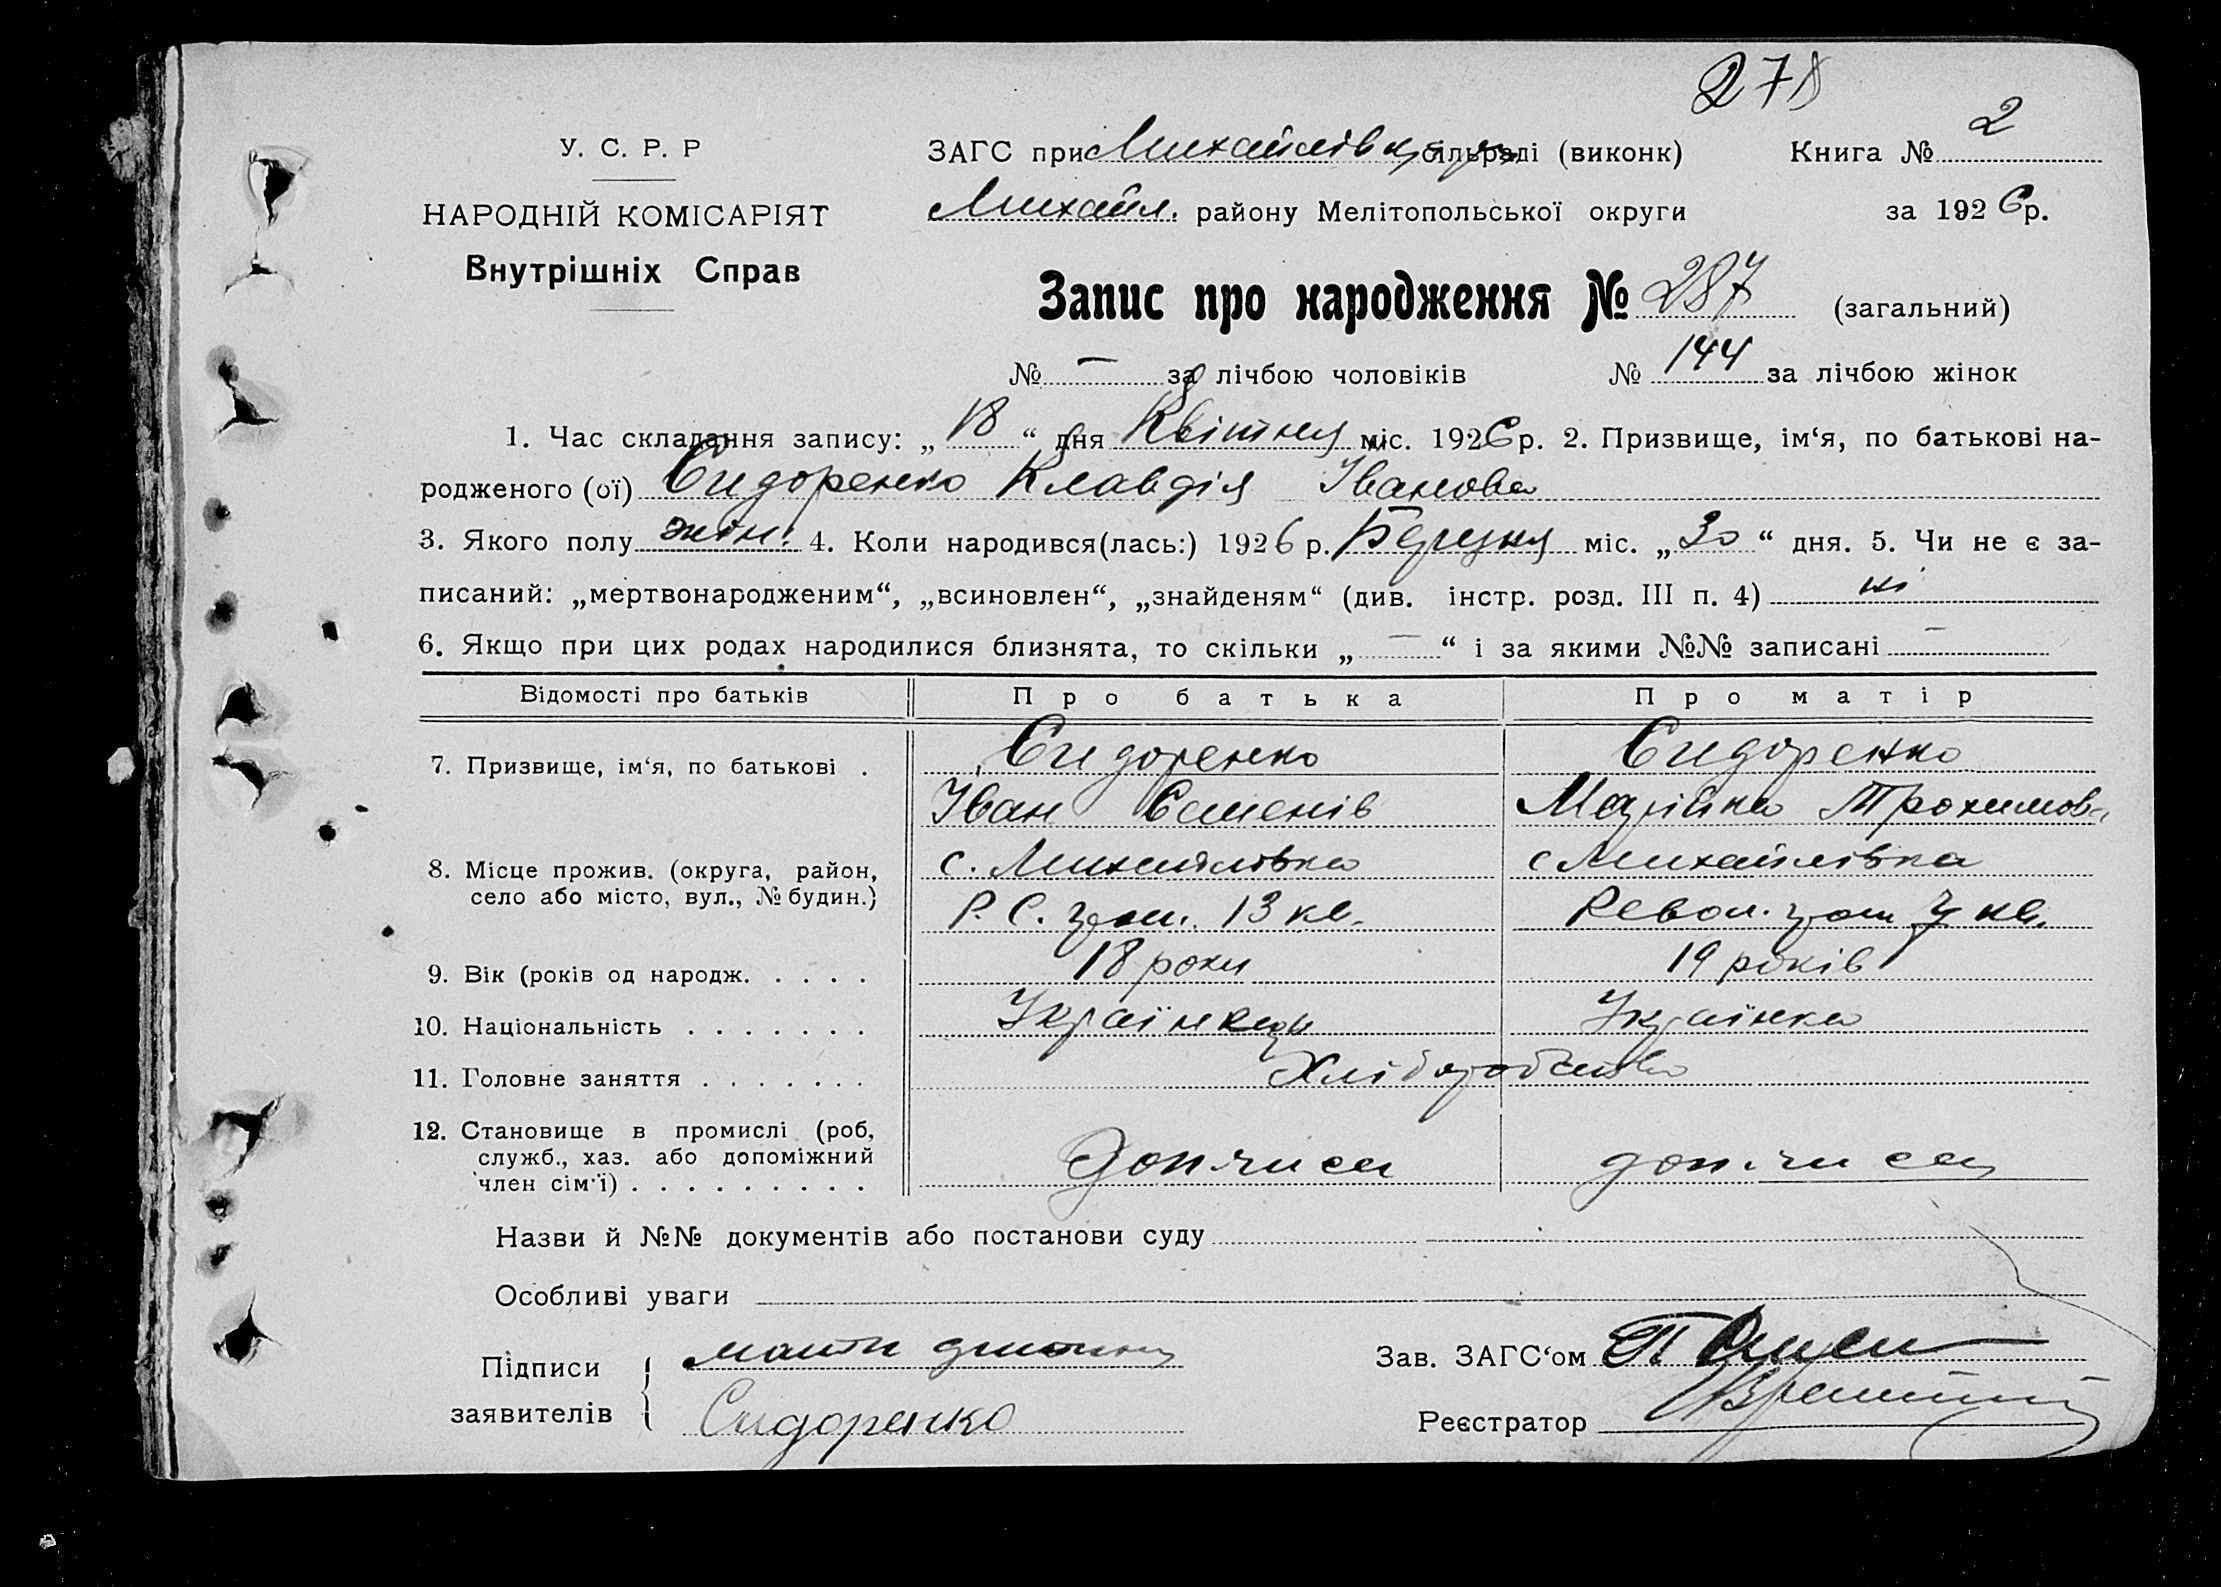 278
У. С. Р. Р
НАРОДНІЙ КОМІСАРІЯТ
Внутрішніх Справ
ЗАГС при Михайлівц. сільраді (виконк) Книга № 2
Михайл. району Мелітопольської округи за 1926 р.
Запис про народження № 287 (загальний)
№ — за лічбою чоловіків № 144 за лічбою жінок
1. Час складання запису: „ 18 “ дня Квітня міс. 1926 р. 2. Призвище, ім‘я, по батькові на-
родженого (ої) Сидоренко Клавдія Іванова
3. Якого полу жін. 4. Коли народився(лась:) 1926 р. Березня міс. „ 30 “ дня. 5. Чи не є за-
писаний: „мертвонародженим“, „всиновлен“, „знайденям“ (див. інстр. розд. III п. 4) ні
6. Якщо при цих родах народилися близнята, то скільки „ — “ і за якими №№ записані —
Відомості про батьків Про батька Про матір
7. Призвище, ім‘я, по батькові . Сидоренко Сидоренко
Іван Семенів Марійка Трохимова
8. Місце прожив. (округа, район, с. Михайлівка с Михайлівка
село або місто, вул., № будин.) Р. С. гром. 13 кв. Револ. гром 7 кв.
9. Вік (років од народж. . . . . 18 роки 19 років
10. Національність . . . . . . . Українець Українка
11. Головне заняття . . . . . . . Хліборобство
12. Становище в промислі (роб,
служб., хаз. або допоміжний
член сім‘ї) . . . . . . . . . доп. чи сем доп. чи сем
Назви й №№ документів або постанови суду
Особливі уваги
Підписи мати дитини Зав. ЗАГС‘ом
заявителів Сидоренко Реєстратор